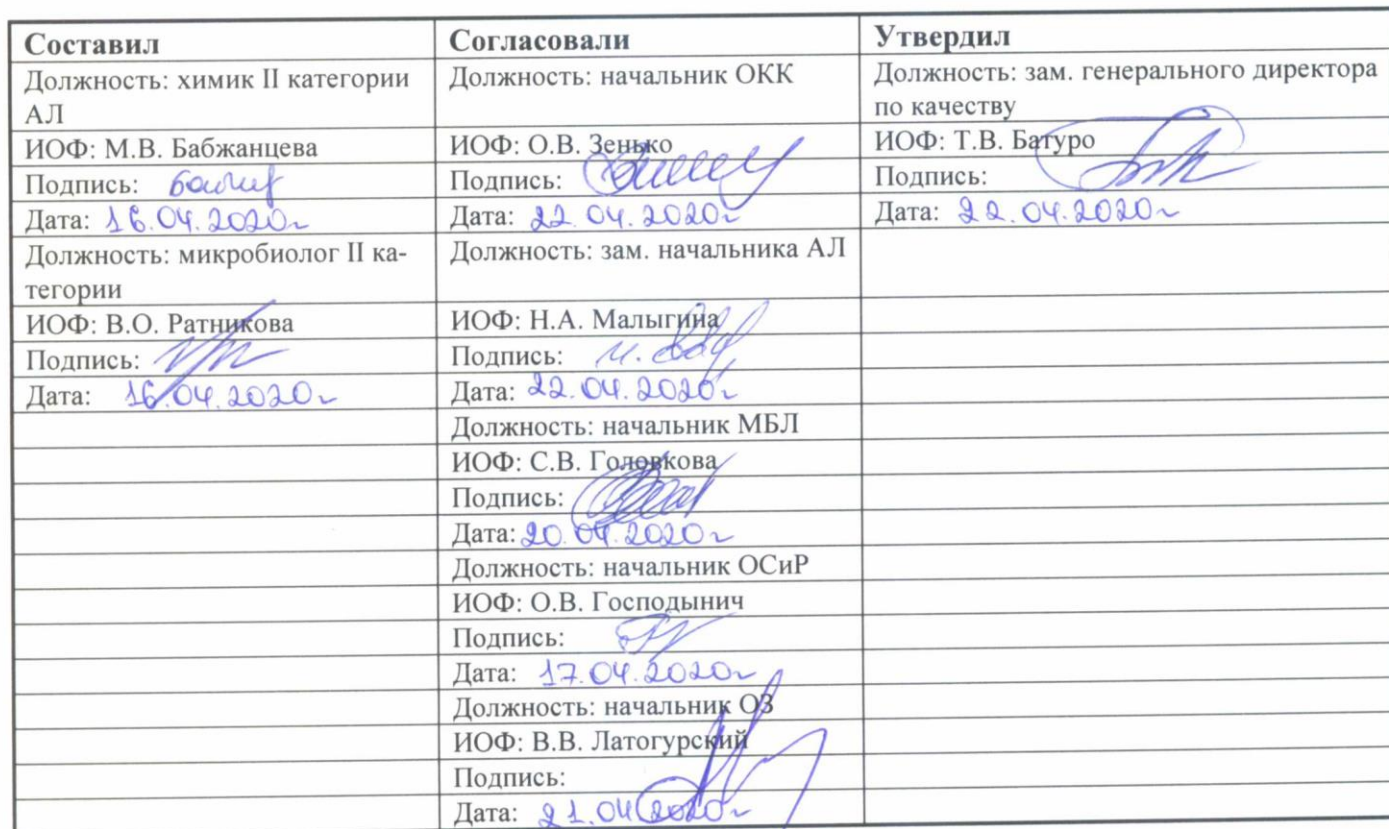 Составил Согласовали Утвердил
Должность: химик II категории Должность: начальник ОКК Должность: зам. генерального директора
АЛ по качеству
ИОФ: М.В. Бабжанцева ИОФ: О.В. Зенько ИОФ: Т.В. Батуро
Подпись: Подпись: Подпись:
Дата: 16.04.2020г Дата: 22.04.2020г Дата: 22.04.2020г
Должность: микробиолог II ка- Должность: зам. начальника АЛ
тегории
ИОФ: В.О. Ратникова ИОФ: Н.А. Малыгина
Подпись: Подпись:
Дата: 16.04.2020г Дата: 22.04.2020г
Должность: начальник МБЛ
ИОФ: С.В. Головкова
Подпись:
Дата: 20.04.2020г
Должность: начальник ОСиР
ИОФ: О.В. Господынич
Подпись:
Дата: 17.04.2020г
Должность: начальник ОЗ
ИОФ: В.В. Латогурский
Подпись:
Дата: 21.04.2020г